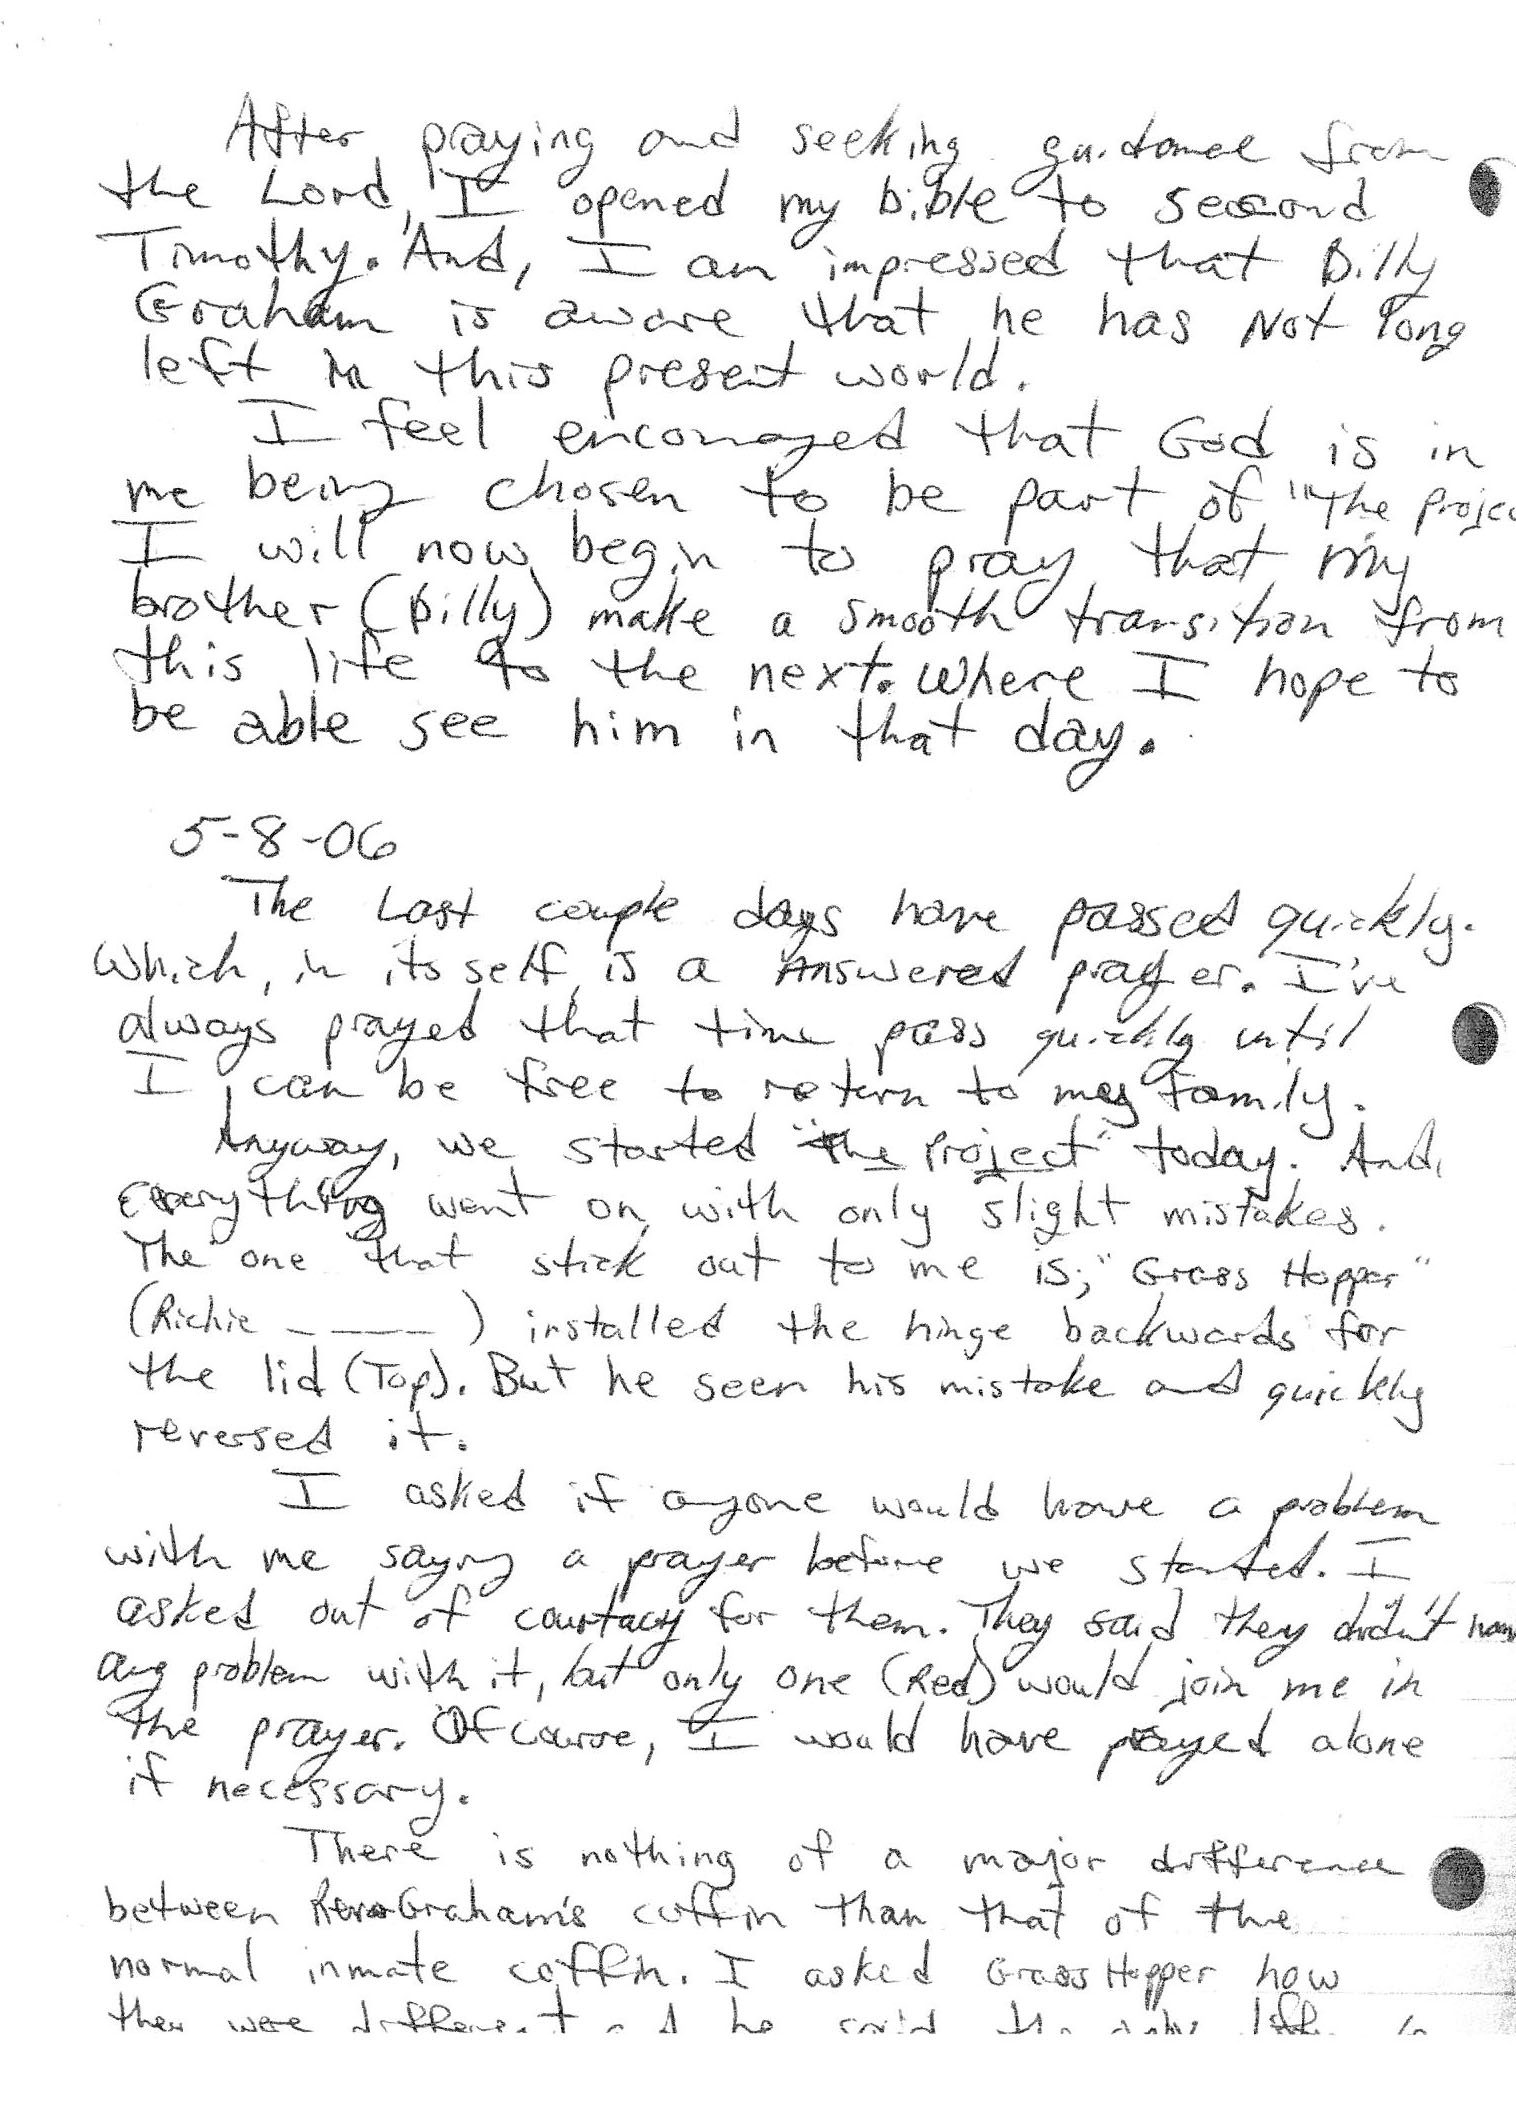 After praying and seeking guidance from
the Lord, I opened my bible to second
Timothy. And, I am impressed that Billy
Graham is aware that he has Not long
left in this present world.
I feel encouraged that God is in
me being chosen to be part of "the projec
I will now begin to pray that my
brother (Billy) make a smooth transition from
this life to the next. Where I hope to
be able see him in that day.
5-8-06
The Last couple days have passed quickly.
Which, in its self, is a Answered prayer. I've
always prayed that time pass quickly until
I can be free to return to my family.
Anyway, we started "the project" today. And,
everything went on with only slight mistakes.
The one that stick out to me is; "Grass Hopper"
(Richie _ ___) installed the hinge backwards for
the lid (Top). But he seen his mistake and quickly
reversed it.
I asked if anyone would have a problem
with me saying a prayer before we started. I
asked out of courtacy for them. They said they didn't hav
any problem with it, but only one (Red) would join me in
the prayer. Of course, I would have prayed alone
if necessary.
There is nothing of a major difference
between Rev. Graham's coffin than that of the
normal inmate coffin. I asked Grass Hopper how
they were different and he said the only